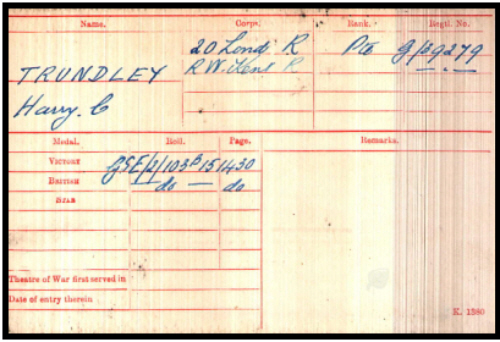 Name. Corps. Rank. Regtl. No.
20 Lond R Pte G/39279
TRUNDLEY R.W. Kent R. — . —
Harry. C
Medal. Roll. Page. Remarks.
VICTORY GSE/2/103B15 1430
BRITISH — do — do
STAR
Theatre of War first served in
Date of entry therein
K. 1380